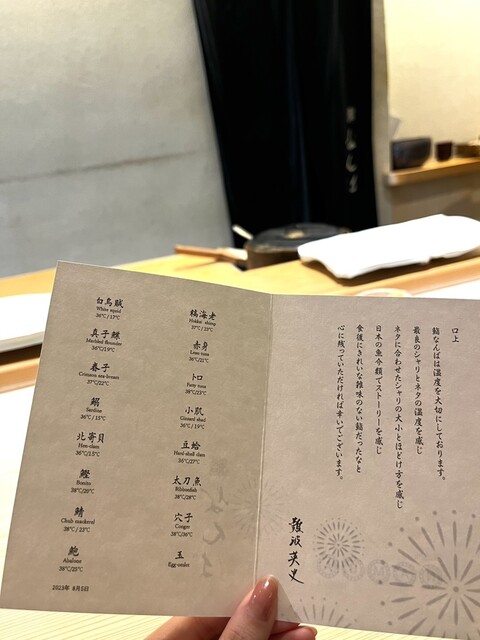 白烏賊
White squid
36℃/17℃
真子鰈
Marbled flounder
36℃/19℃
春子
Crimson sea-bream
37℃/22℃
鰯
Sardine
36℃/15℃
北寄貝
Hen-clam
36℃/15℃
鰹
Bonito
38℃/20℃
鯖
Chub mackerel
38℃/23℃
鮑
Abalone
38℃/25℃
2023年 8月5日
縞海老
Hokkai shrimp
37℃/23℃
赤身
Lean tuna
36℃/21℃
トロ
Fatty tuna
38℃/23℃
小肌
Gizzard shad
36℃/19℃
豆蛤
Hard-shell clam
36℃/27℃
太刀魚
Ribbonfish
38℃/38℃
穴子
Conger
38℃/36℃
玉
Egg-omlet
口上
鮨なんばは温度を大切にしております。
最良のシャリとネタの温度を感じ
ネタに合わせたシャリの大小とほどけ方を感じ
日本の魚介類でストーリーを感じ
食後にきれいな雑味のない鮨だったなと
心に残っていただければ幸いでございます。
難波英史